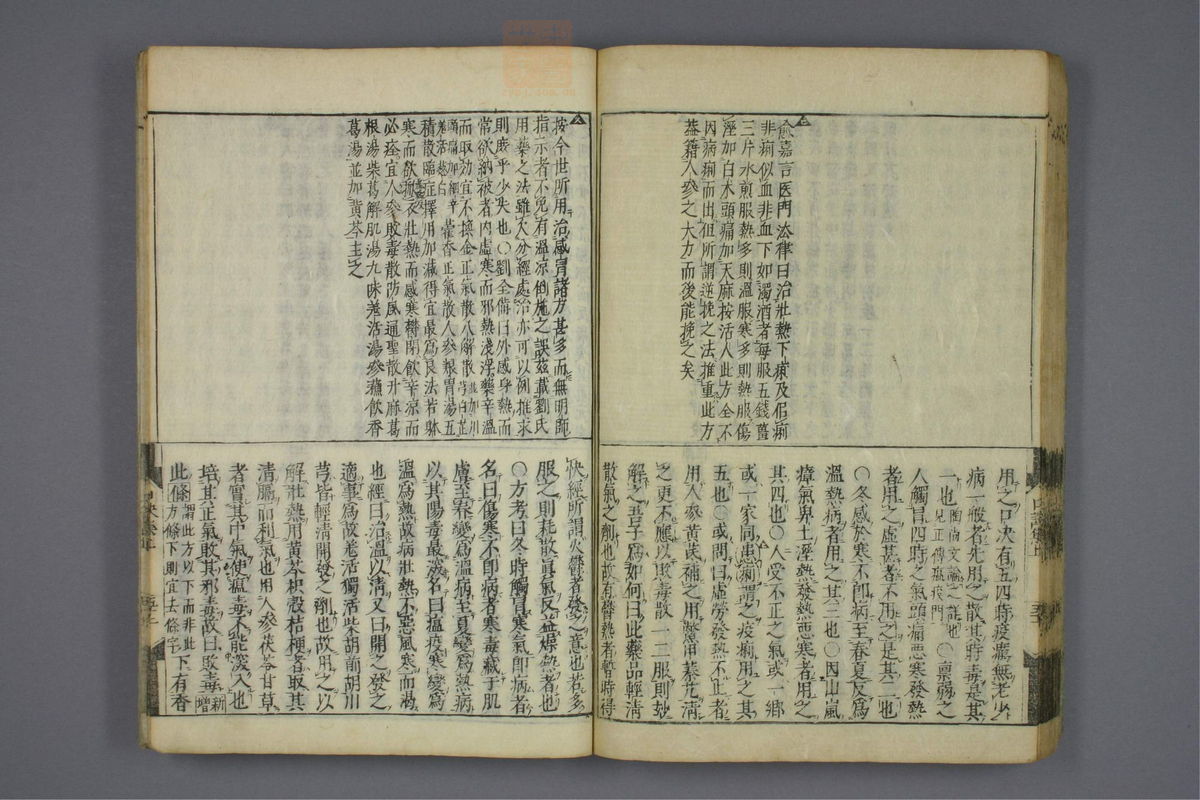 喻嘉言医門法律曰治壯熱下痢及但痢
非痢似血非血下如濁酒者每服五錢薑
三片水煎服熱多則溫服寒多則熱服傷
溼加白朮頭痛加天麻按活人此方全不
因病痢而出但所謂逆挽之法推重此方
蓋籍人參之大力而後能挽之矣
用之口决有五四時疫癘無老少
病一般者先用之散其時毒是其
一也○稟弱之
人觸冒四時之氣頭痛惡寒發熱
者用之虛甚者不用之是其二也
○冬感於寒不即病至春夏反為
溫熱病者用之其三也○因山嵐
瘴氣卑土溼熱發熱惡寒者用之
其四也○人受不正之氣或一鄉
或一家同患痢謂之疫痢用之其
五也○或問曰虛勞發熱不止者
用人參黃芪補之用鱉甲秦艽清
之更不應以敗毒散一二服則玅
解之吾子為如何曰此藥品輕清
散氣之劑也故有鬱熱者暫時得
按今世所用治感冒諸方甚多而無明師
指示者不免有溫凉倒施之誤茲載劉氏
用藥之法雖欠分經處治亦可以例推求
則庶乎少失也○劉全備曰外感身熱而
常欲納被者內虛寒而邪熱淺浮藥辛溫
而取効宜不換金正氣散八解散
藿香正氣散人參養胃湯五
積散臨症擇用加減得宜最為良法若躰
寒而欲衣壯熱而感寒鬱閉欲辛凉而
必痊宜人參敗毒散防風通聖散升麻葛
根湯柴葛解肌湯九味羗活湯參蘇飲香
葛湯並加黃芩主之
快經所謂火鬱者發之意也若多
服之則耗散眞氣反益燥熱者也
○方考曰冬時觸冒寒氣即病者
名曰傷寒不即病者寒毒藏于肌
膚至春變為溫病至夏變為熱病
以其陽毒最深名曰瘟疫寒變為
溫為熱故病壯熱不惡風寒而渴
也經曰治溫以清又曰開之發之
適事為故羗活獨活柴胡前胡川
芎皆輕清開發之劑也故用之以
解壯熱用黃芩枳殼桔梗者取其
清膈而利氣也用人參茯苓甘草
者實其中氣使瘟毒不能深入也
培其正氣敗其邪毒故曰敗毒新增
此條謂此方以下而非此方條下則宜去條字下有香